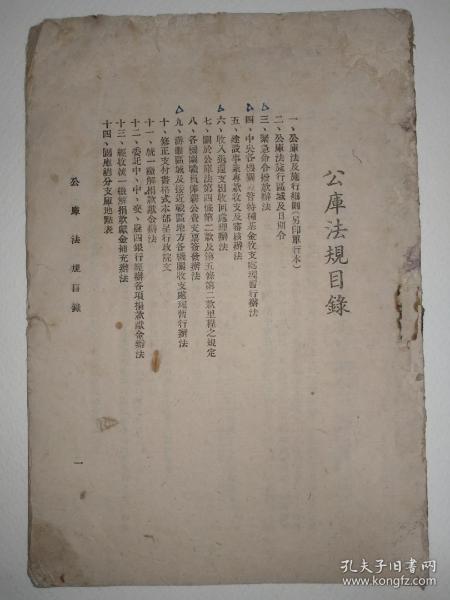 公庫法規目錄
一、公庫法及施行細則（另印單行本）
二、公庫法施行區域及日期令
三、緊急命令撥款辦法
四、中央各機關經管特種基金收支處理暫行辦法
五、建設事業專款收支及審核辦法
六、收入退還支出收回處理辦法
七、關於公庫法第四條第二款及第五條第二款里程之規定
八、各機關職員俸薪公費支票簽發辦法
九、游擊區域及接近戰區地方各機關收支處理暫行辦法
十、修正支付書格式本部呈行政院文
十一、統一繳解捐款獻金辦法
十二、委託中、中、交、農四銀行經辦各項捐款獻金辦法
十三、經收統一繳解捐款獻金補充辦法
十四、國庫總分支庫地點表
公庫法規目錄
一
孔夫子旧书网
www.kongfz.com